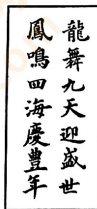 龍舞九天迎盛世
鳳鳴四海慶豐年